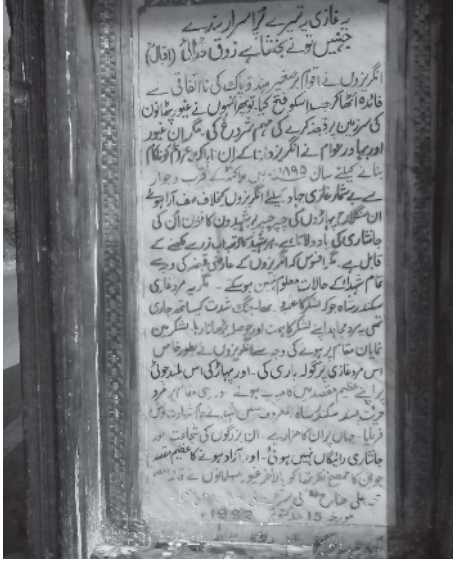 یہ غازی یہ تیرے پُراسرار بندے
جنہیں تو نے بخشا ہے ذوق خدائی (اقبال)
انگریزوں نے اقوام برصغیر ہند و پاک کی نااتفاقی سے
فائدہ اٹھا کر جب اسکو فتح کیا۔ تو پھر انہوں نے غیور پٹھانوں
کی سرزمین پر قبضہ کرنے کی مہم شروع کی۔ مگر ان غیور
اور بہادر عوام نے انگریزوں کے ان ناپاک عزائم کو ناکام
بنانے کیلئے سن 1895ء میں ملاکنڈ کے قرب و جوار
سے بے شمار غازی جہاد کیلئے انگریزوں کے خلاف صف آرا ہوئے
ان سنگلاخ پہاڑوں کی چپہ چپہ پر شہیدوں کا خون اُن کی
جانثاری کی یاد دلاتا ہے۔ ہر شہید کا
قابل ہے۔ مگر افسوس کہ انگریزوں کے عارضی قبضہ کی وجہ سے
تمام شہدا کے حالات معلوم نہیں ہو سکے۔ مگر یہ مرد غازی
سکندر شاہ جو کہ لشکر کا جنگ شدت کیساتھ جاری
تھی یہ مرد مجاہد اپنے لشکر کا ہمت اور حوصلہ بڑھاتا رہا۔ لشکر میں
نمایاں مقام پر ہونے کی وجہ سے انگریزوں نے بطور خاص
اس مرد غازی پر گولہ باری کی۔ اور پہاڑ کی اس بلند چوٹی
پر اپنے عظیم مقصد میں ہوئے مقام پر مرد
حریت پسند سکندر شاہ نے جام شہادت نوش
فرمایا۔ جہاں پر ان کا مزار ہے۔ ان بزرگوں کی شجاعت اور
جانثاری رائیگاں نہیں ہوئی۔ اور آزاد ہونے کا عظیم مقصد
جو ان کا مطمع نظر تھا کو بالآخر غیور مسلمانوں نے قائد اعظم
محمد علی جناح کی
مورخہ 15